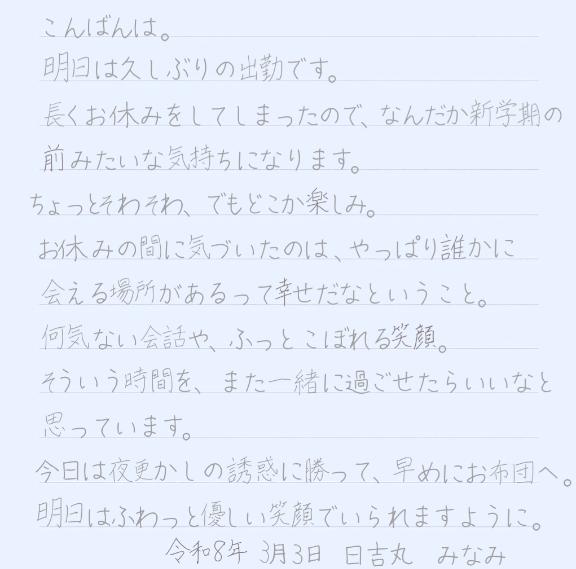 こんばんは。
明日は久しぶりの出勤です。
長くお休みをしてしまったので、なんだか新学期の
前みたいな気持ちになります。
ちょっとそわそわ、でもどこか楽しみ。
お休みの間に気づいたのは、やっぱり誰かに
会える場所があるって幸せだなということ。
何気ない会話や、ふっとこぼれる笑顔。
そういう時間を、また一緒に過ごせたらいいなと
思っています。
今日は夜更かしの誘惑に勝って、早めにお布団へ。
明日はふわっと優しい笑顔でいられますように。
令和8年 3月3日 日吉丸 みなみ